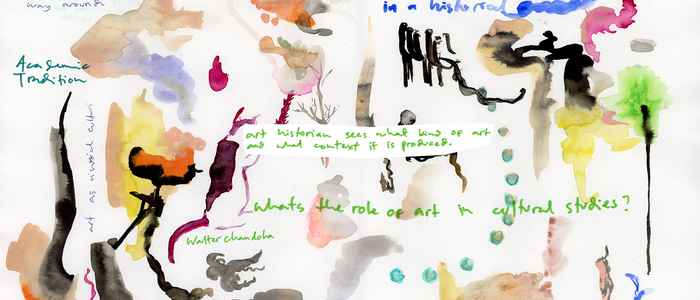 way around
in a historical
Academic
Tradition
art as visual culture
art historian sees what kind of art
and what context it is produced.
whats the role of art in cultural studies?
Walter chandoha